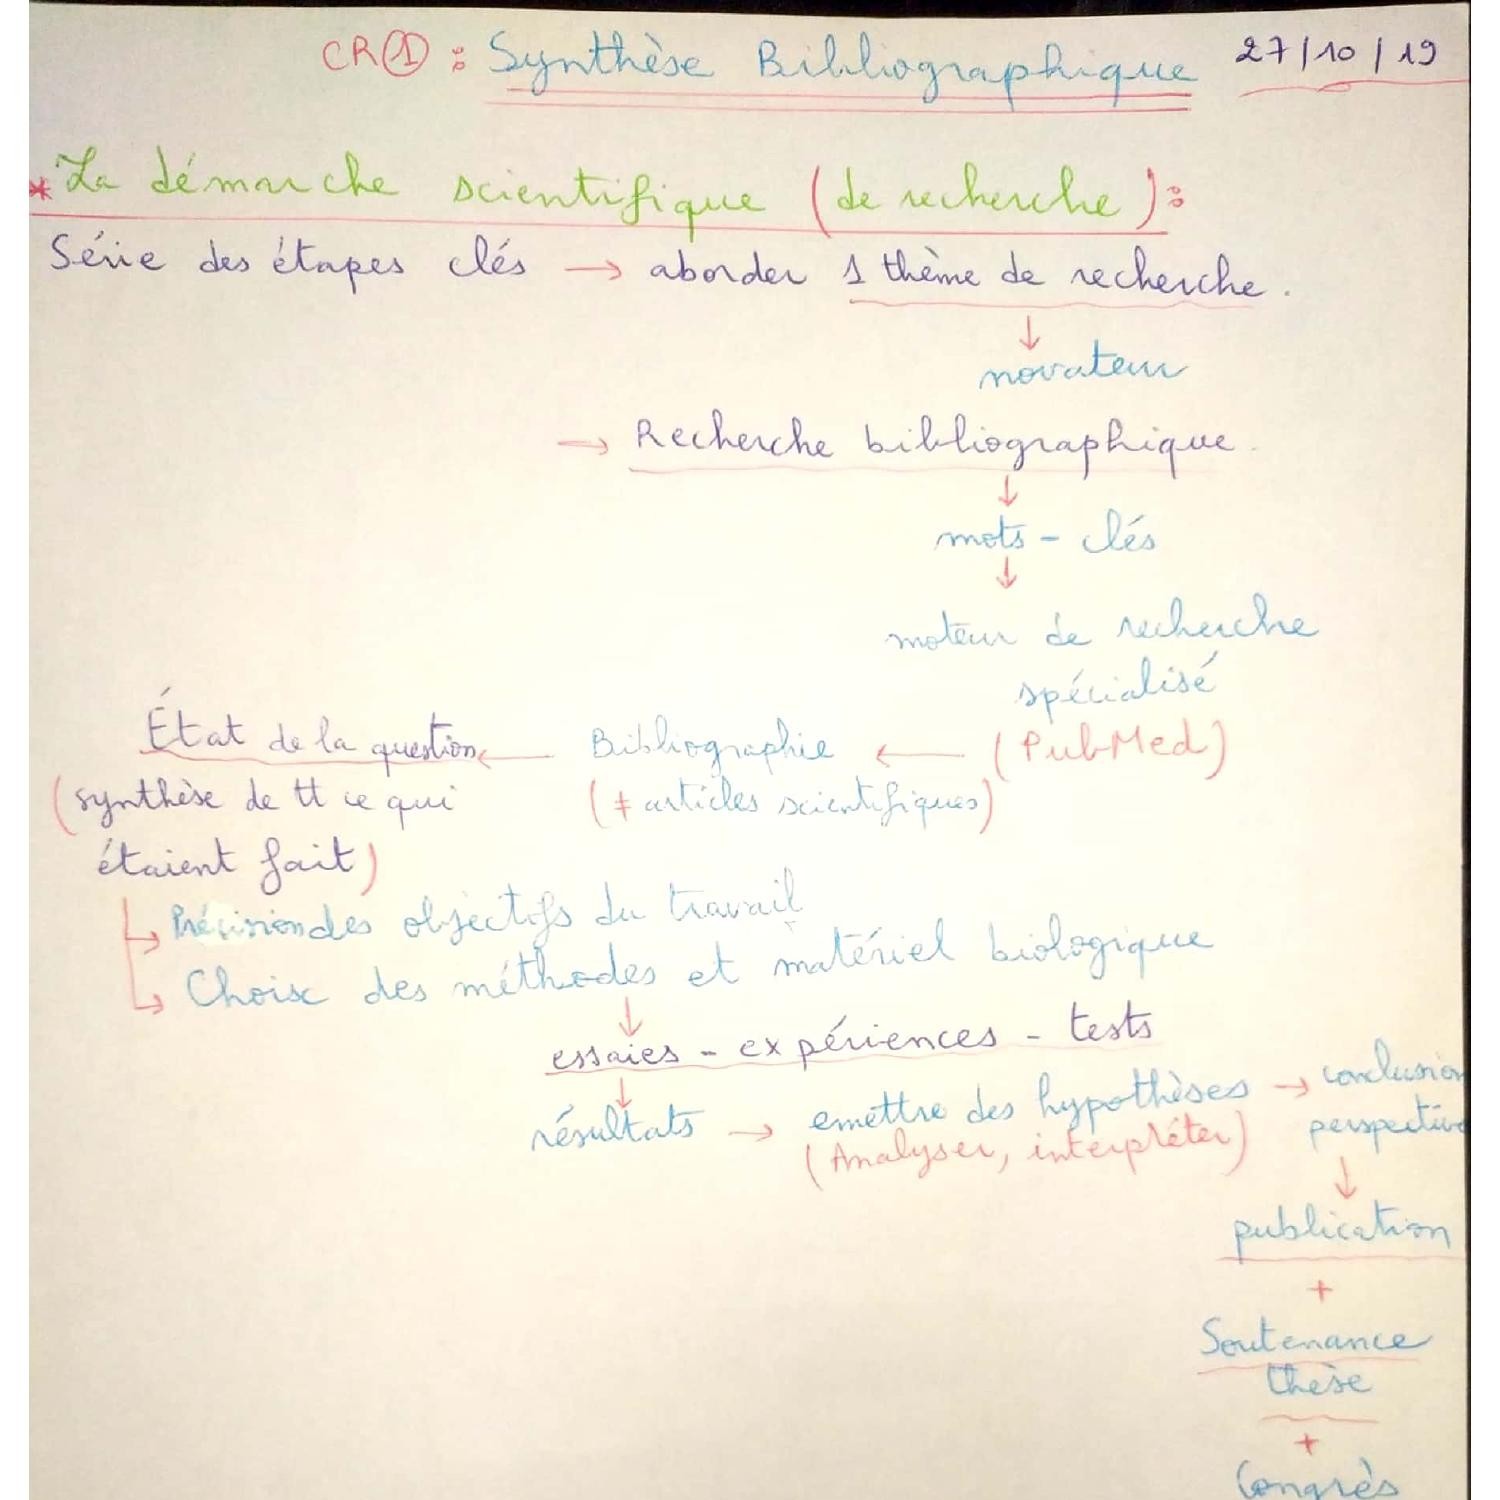 CR① : Synthèse Bibliographique 27/10/19
* La démarche scientifique (de recherche) :
Série des étapes clés → aborder 1 thème de recherche.
↓
novateur
→ Recherche bibliographique.
↓
mots - clés
↓
moteur de recherche
spécialisé
État de la question ← Bibliographie ← (PubMed)
(synthèse de tt ce qui (≠ articles scientifiques)
étaient fait)
↳ Précision des objectifs du travail
↳ Choix des méthodes et matériel biologique
↓
essaies - expériences - tests
↓
résultats → emettre des hypothèses → conclusion
(Analyser, interpréter) perspective
↓
publication
+
Soutenance
thèse
+
Congrès